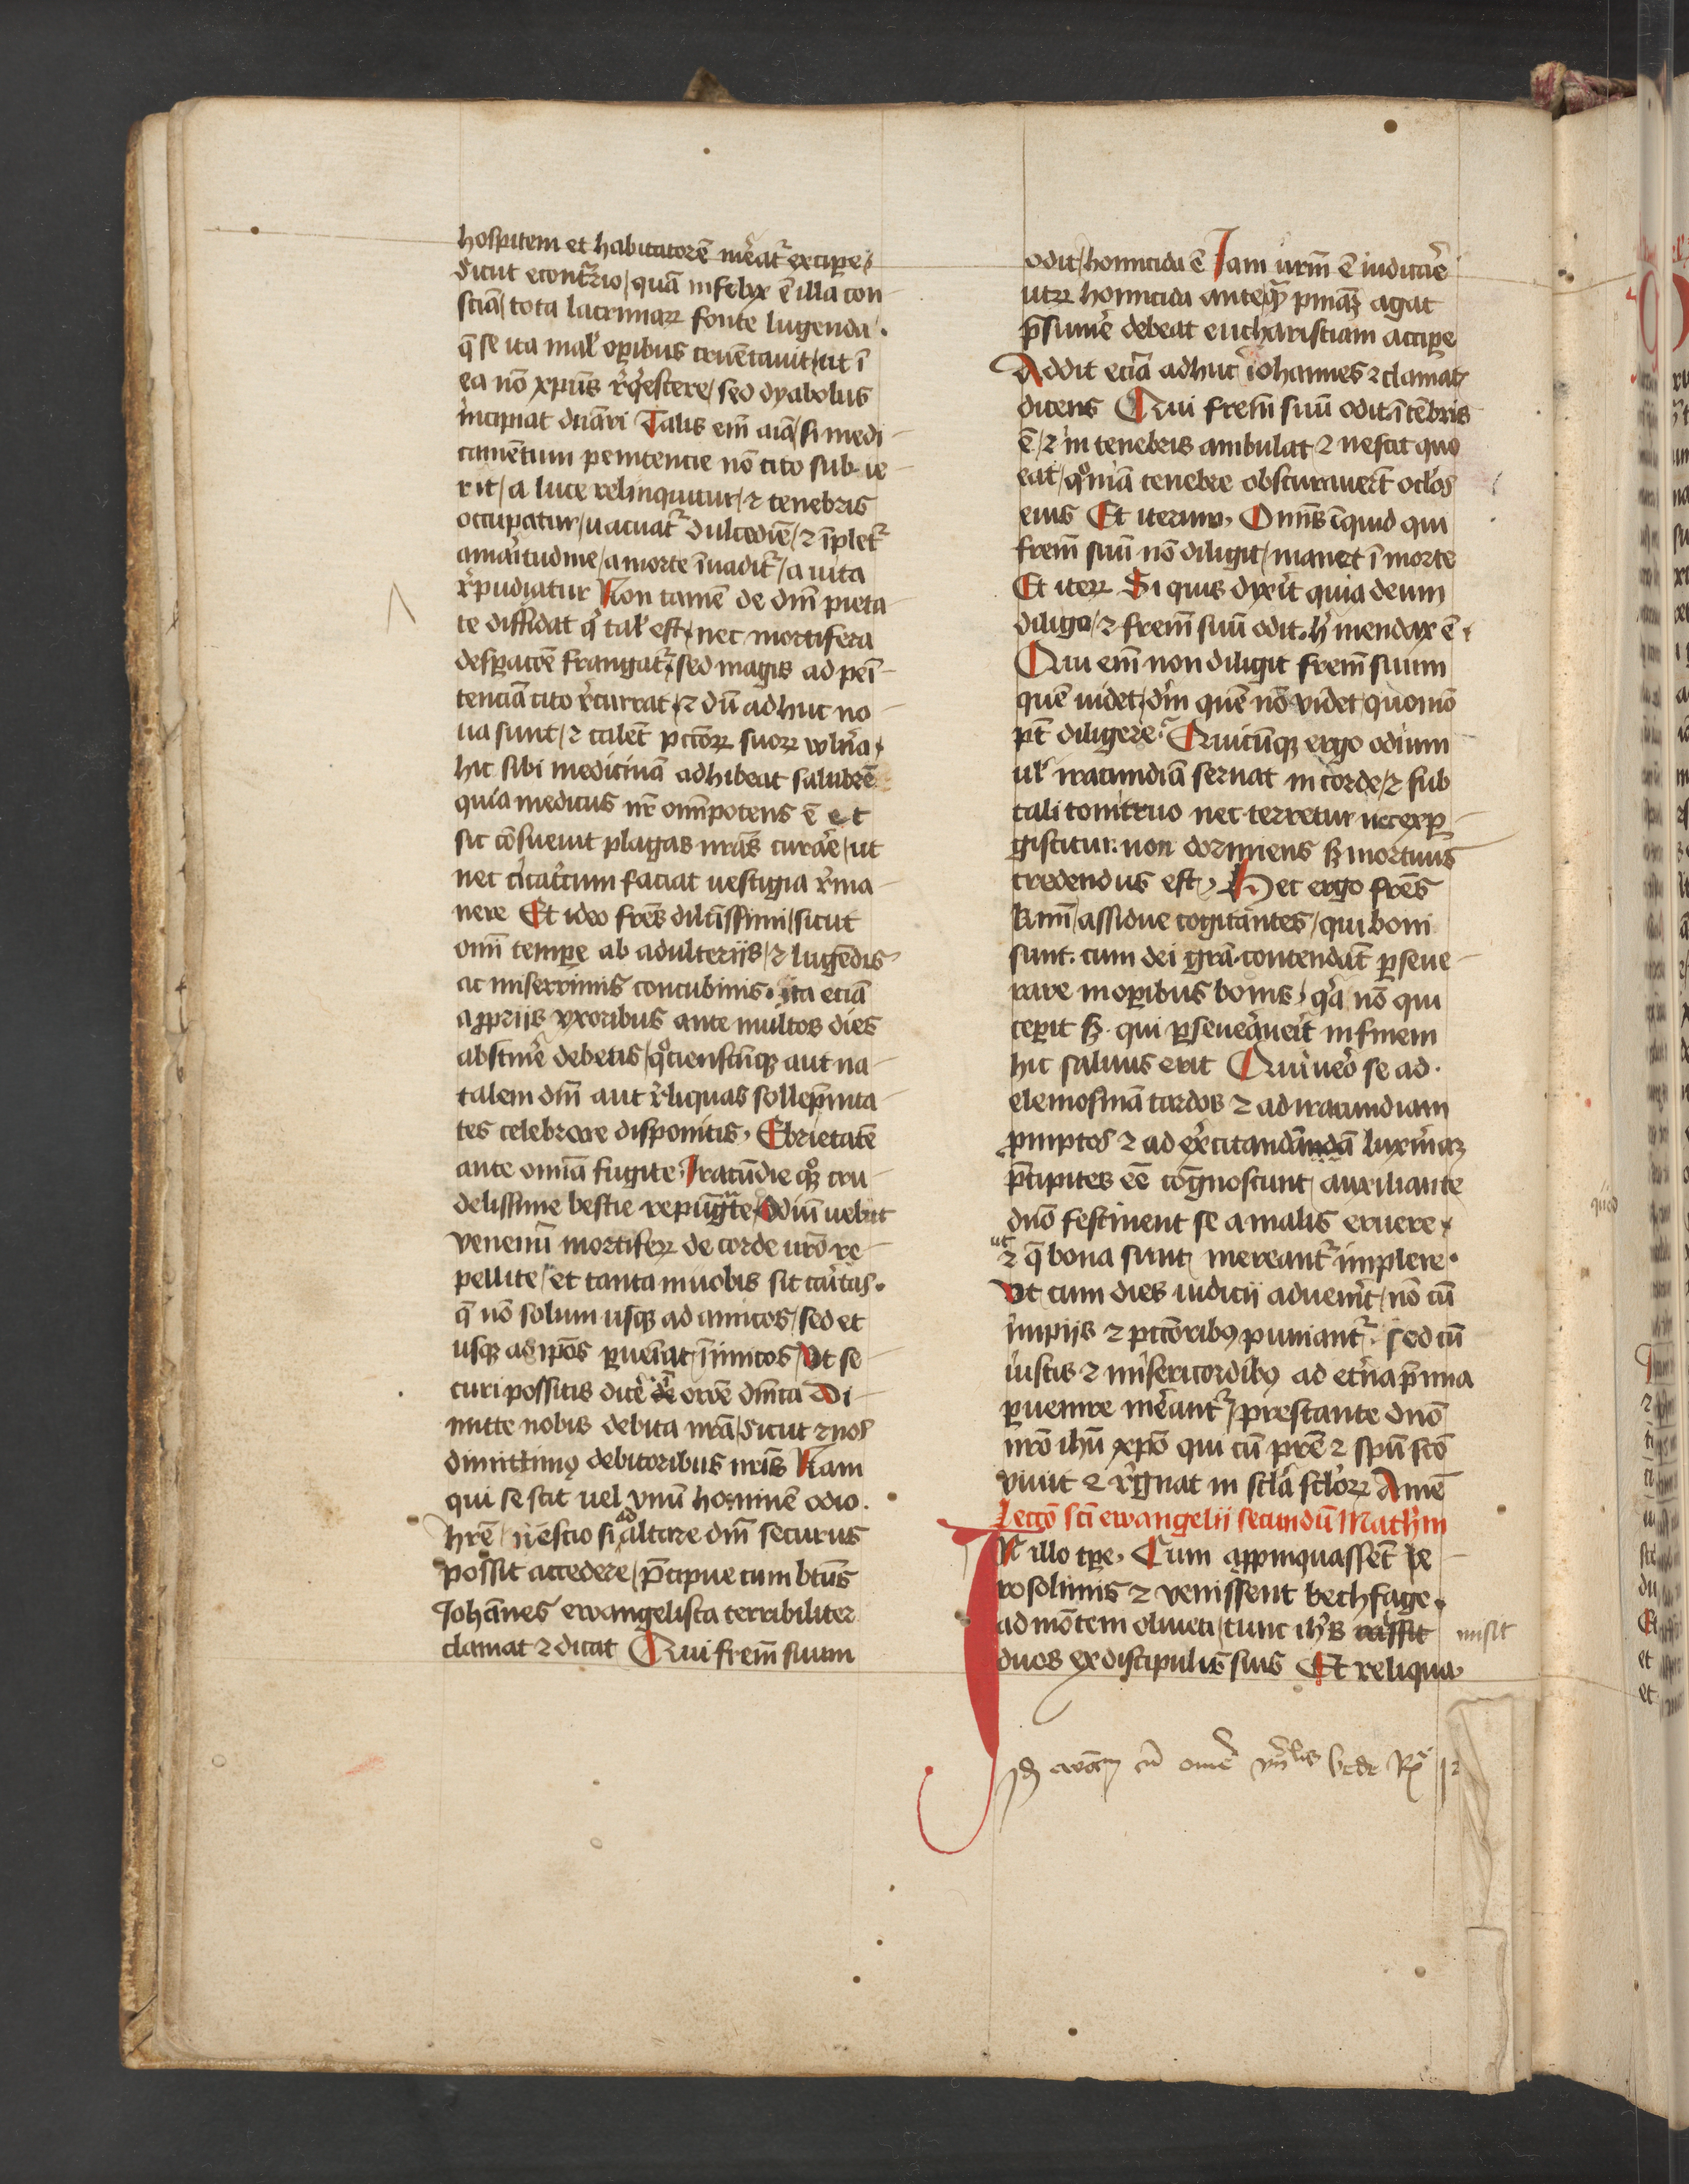 hospitem et habitatorē mer̄eat᷑ excipe᷑
Sicut econt᷑rio quā infelyx ē illa con
sciā tota lacrimaꝝ fonte lugenda.
q̄ se ita mal' oꝑibus cruētauit ut ī
ea nō xpūs r̄q̇escere sed dyabolus
incipiat dn̄ari Talis em̄ aīa si medi
camētum penitencie nō cito subue
rit a luce relinquitur ⁊ tenebris
occupatur uacuat᷑ dulcedīe ⁊ īplet᷑
amaritudine a morte īuadit᷑ a uita
r̄pudiatur Non tamē de dnī pieta
te diffidat q̇ tal' est nec mortifera
desꝑacōē frangat᷑ sed magis ad penī
tenciā cito r̄currat ⁊ dū adhuc no
ua sunt ⁊ calēt pctōꝝ suoꝝ vuln̄a
hic sibi medicinā adhibeat salubrē
quia medicus nr̄ om̄ipotens ē et
sic cōsueuit plagas nr̄as curar̄e ut
nec cicatricum faciat uestigia r̄ma
nere Et ideo fr̄es dil̄tissimi sicut
om̄i tempe ab adulterijs ⁊ lugēdis
ac miserrimis concubinis. ita eciā
a ꝓprijs vxoribus ante multos dies
abstiner̄e debetis qociensc̄ūqꝫ aut na
talem dn̄i aut r̄liquas sollep̄nita
tes celebrare disponitis. Ebrietatē
ante om̄ia fugite Iracūdie qoqꝫ cru
delissime bestie repūgᷓte Odiū uelut
venenū mortifeꝝ de corde urō re
pellite et tanta in uobis sit caritas.
q̄ nō solum usqꝫ ad amicos sed et
usqꝫ ad ip̄os ꝑuen̄iat īimicos Ut se
curi possitis dicer̄e ī or̄oe dn̄ica Di
mitte nobis debita nr̄a sicut ⁊ nos
dimittimꝯ debitoribus nr̄is Nam
qui se scit uel vnū hominē odio.
hr̄e nescio si ad altare dn̄i securus
possit accedere p̄cipue cum bt̄us
Iohannes ewangelista terribiliter
clamat ⁊ dicat Qui fr̄em suum
odit homicida ē Iam ur̄m ē iudicar̄e
utꝝ homicida anteqᷓ pn̄iaꝫ agat
p̄sumer̄e debeat eucharistiam accipe
Addit eciā adhuc iohannes ⁊ clamat
dicens Qui fr̄em suū odit ī tēbris
ē ⁊ in tenebris ambulat ⁊ nescit quo
eat qoniā tenebre obscurauer̄t oclos
eius Et iterum. Om̄is īquid qui
fr̄em suū nō diligit manet ī morte
Et iteꝝ Si quis dyxit quia deum
diligo ⁊ fr̄em suū odit. h̄ mendax ē
Qui em̄ non diligit fr̄em suum
quē uidet dm̄ quē nō videt quomō
pt̄ diligere? Quicūqꝫ ergo odium
ul' iracundiā seruat in corde ⁊ sub
tali tonitruo nec terretur nec exꝑ
giscitur: non dormiens sꝫ mortuus
credendus est. Hec ergo fr̄es
km̄i assidue cogitantes qui boni
sunt. cum dei grā. contendāt ꝑseue
rare in oꝑibus bonis qᷓ nō qui
ceꝑit sꝫ. qui ꝑseueᷓuerit in finem
hic saluus erit Qui uero se ad.
elemosinā tardos ⁊ ad iracundiam
ꝓmptos ⁊ ad ex̄citandā luxuriaꝫ
p̄cipites eē cōgnoscunt auxiliante
dn̄o festinent se a malis eruere
ut
⁊ q̄ bona sunt mereant᷑ implere.
Ut cum dies iudicij aduenit nō cū
impijs ⁊ pctōribꝯ puniant᷑. sed cū
iustis ⁊ misericordibꝯ ad et̄na p̄mia
ꝑuenire mer̄eant᷑ prestante dn̄o
nr̄o ihū xp̄o qui cū pr̄e ⁊ spū scō
viuit ⁊ r̄gnat in scl̄a scl̄oꝝ Amē
Leccō sc̄i ewangelij secundū Math̄m
IN illo tꝑe. Cum apꝓpinquassēt ie
rosolimis ⁊ venissent bethfage.
ad mōtem oliueti tunc ih̄s misit
misit
duos ex discipulis suis Et reliqua